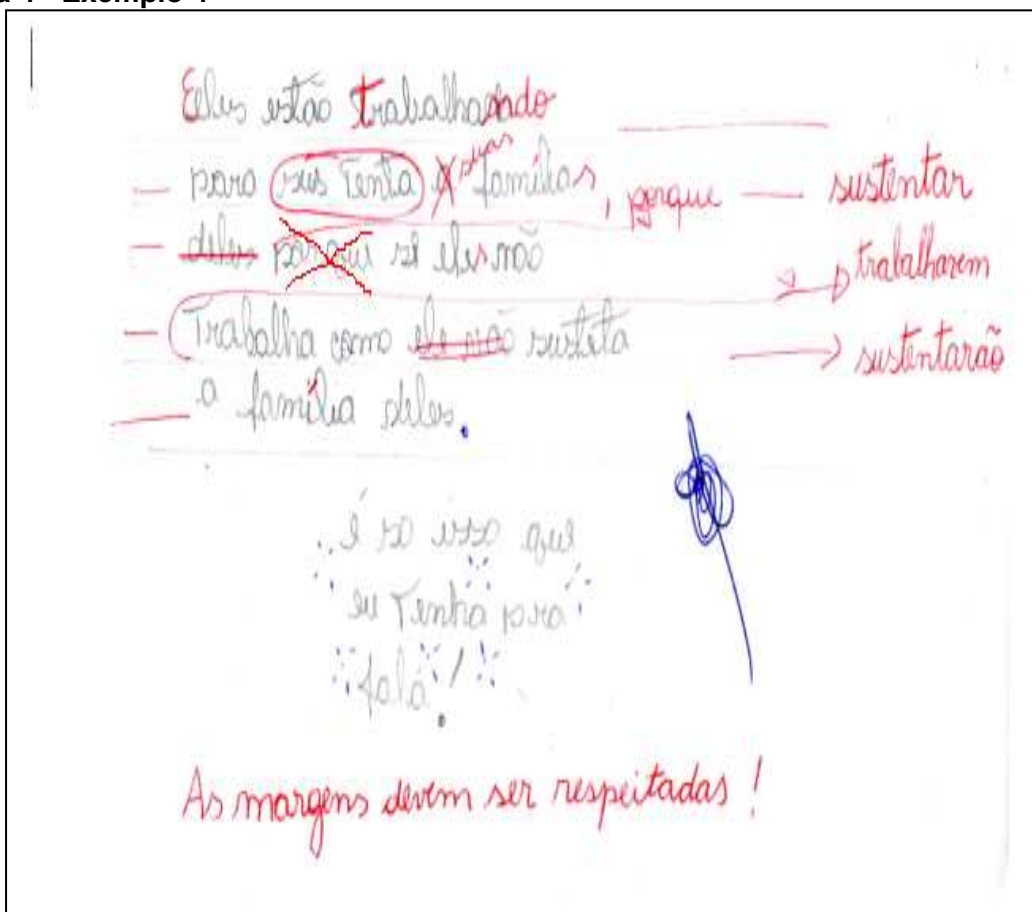 Eles estão trabalhando
para sus Tenta a suas famílias, porque — sustentar
deles por qui sê eles não trabalharem
Trabalha como ele não susteta → sustentarão
a família deles.
é so isso que
eu Tenha pra
falá!
As margens devem ser respeitadas!